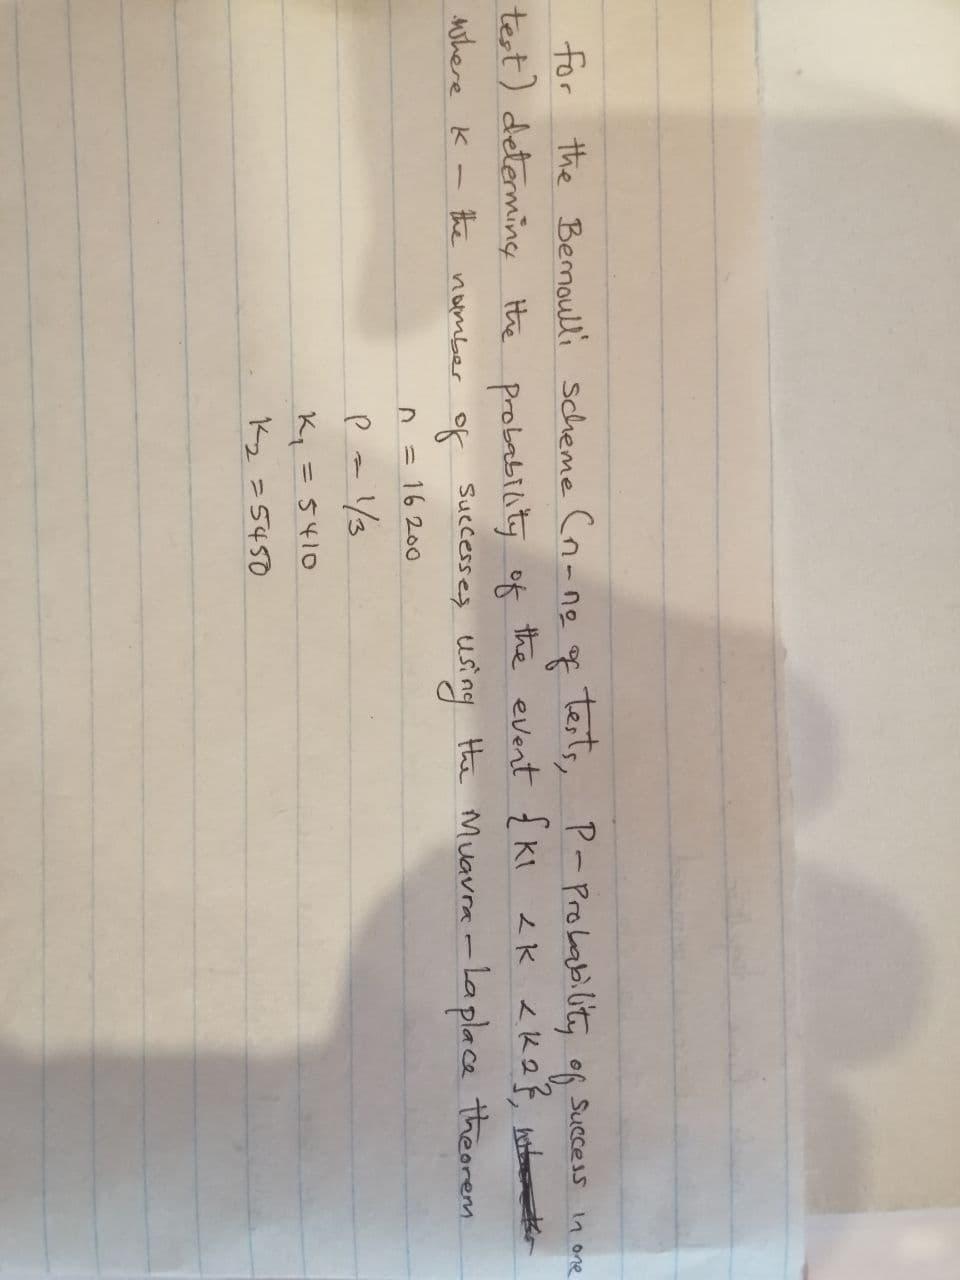 for the Bernoulli scheme (n - no of tests, P - Probability of success in one
test) determine the probability of the event {K1 < K < K2},
where K - the number of successes using the Muavra - Laplace theorem
n = 16 200
P = 1/3
K1 = 5410
K2 = 5450